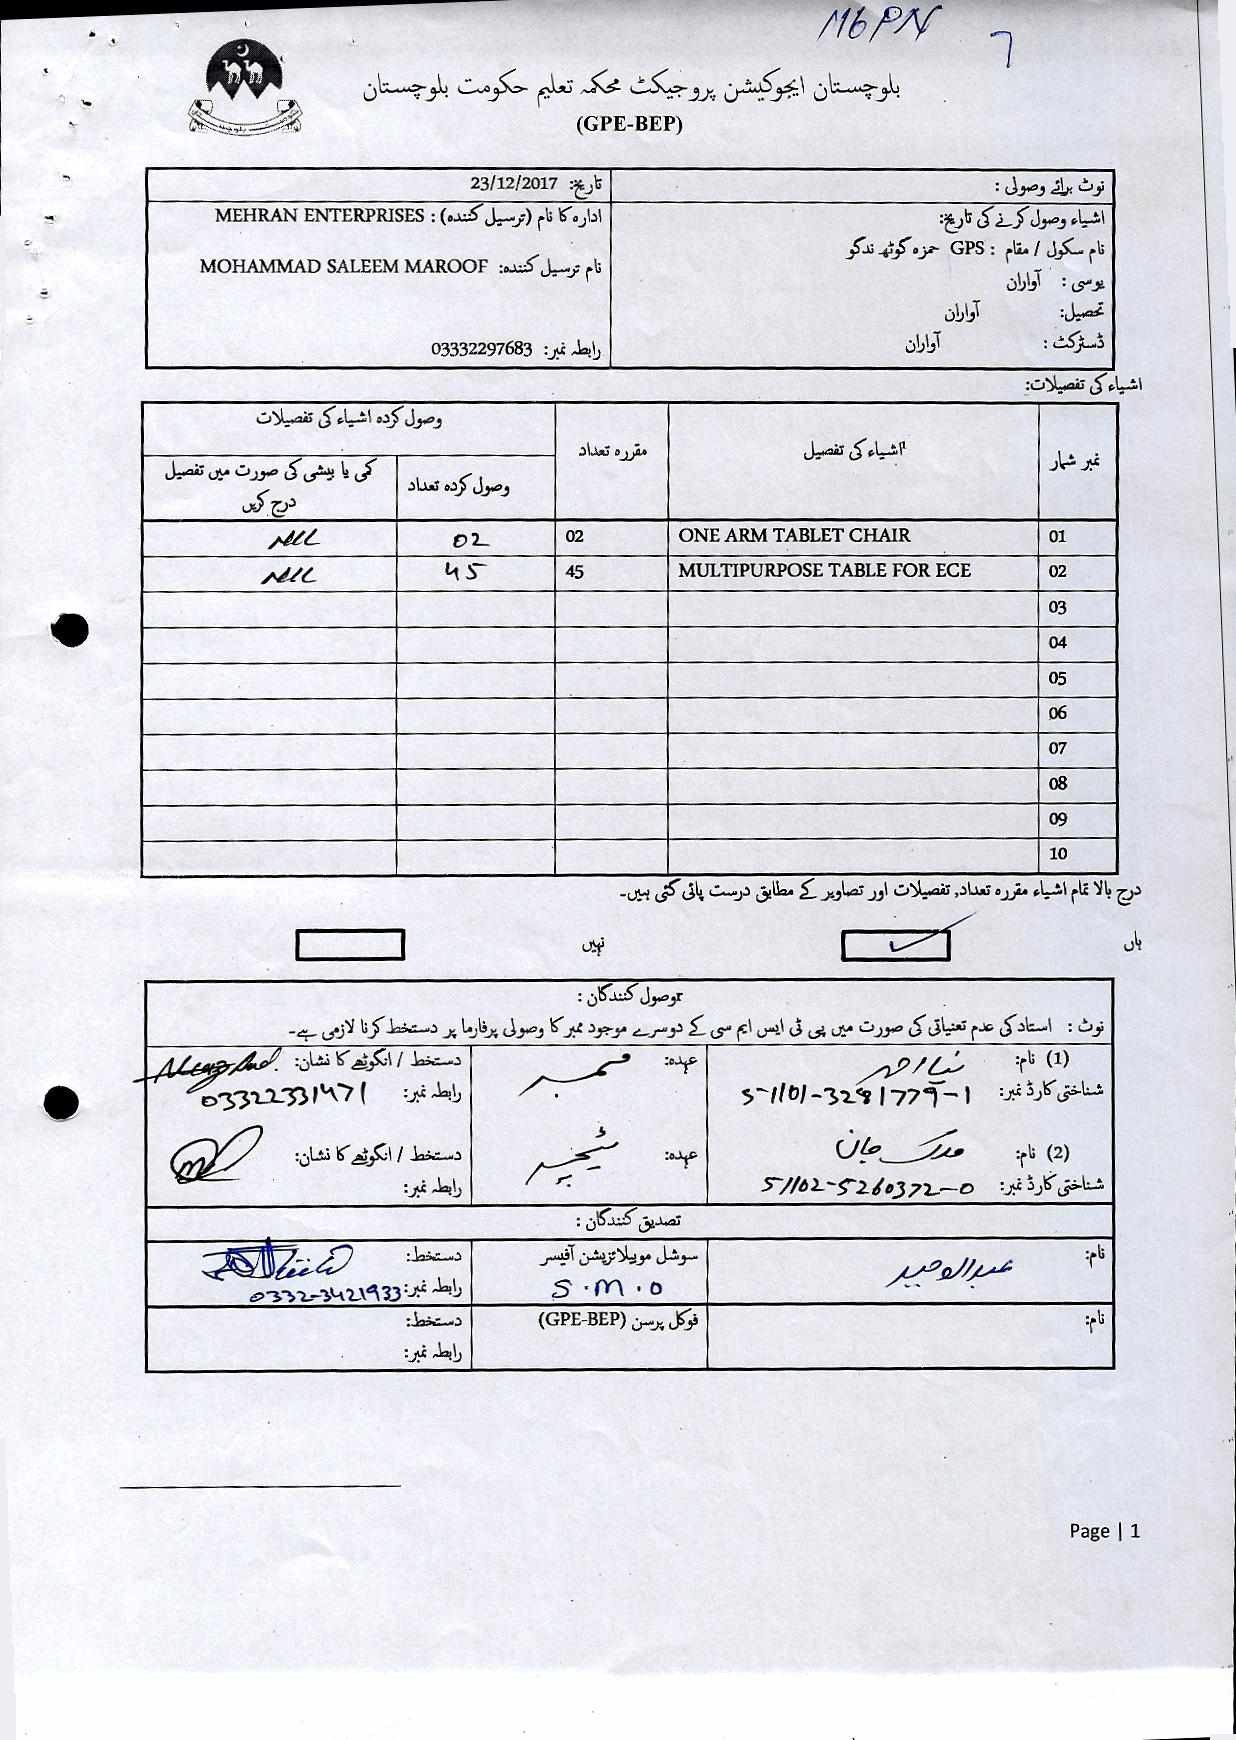 M6PN 7
بلوچستان ایجوکیشن پروجیکٹ محکمہ تعلیم حکومت بلوچستان
(GPE-BEP)
نوٹ برائے وصولی :
اشیاء وصول کرنے کی تاریخ:
نام سکول / مقام : GPS حمزہ گوٹھ ندگو
یوسی : آواران
تحصیل: آواران
ڈسٹرکٹ : آواران
تاریخ: 23/12/2017
ادارہ کا نام (ترسیل کنندہ) : MEHRAN ENTERPRISES
نام ترسیل کنندہ: MOHAMMAD SALEEM MAROOF
رابطہ نمبر: 03332297683
اشیاء کی تفصیلات:
نمبر شمار اشیاء کی تفصیل مقررہ تعداد وصول کردہ اشیاء کی تفصیلات
وصول کردہ تعداد کمی یا بیشی کی صورت میں تفصیل
درج کریں
01 ONE ARM TABLET CHAIR 02 02 NIL
02 MULTIPURPOSE TABLE FOR ECE 45 45 NIL
03
04
05
06
07
08
09
10
درج بالا تمام اشیاء مقررہ تعداد, تفصیلات اور تصاویر کے مطابق درست پائی گئی ہیں۔
ہاں ✓ نہیں
وصول کنندگان :
نوٹ : استاد کی عدم تعنیاتی کی صورت میں پی ٹی ایس ایم سی کے دوسرے موجود ممبر کا وصولی پرفارما پر دستخط کرنا لازمی ہے۔
(1) نام: عہدہ: ممبر دستخط / انگوٹھے کا نشان:
شناختی کارڈ نمبر: 51101-3281779-1 رابطہ نمبر: 03322331471
(2) نام: جان عہدہ: ٹیچر دستخط / انگوٹھے کا نشان:
شناختی کارڈ نمبر: 51102-5260372-0 رابطہ نمبر:
تصدیق کنندگان :
نام: عبدالوحید سوشل موبیلائزیشن آفیسر دستخط:
S.M.O رابطہ نمبر: 0332-3421933
نام: فوکل پرسن (GPE-BEP) دستخط:
رابطہ نمبر:
Page | 1